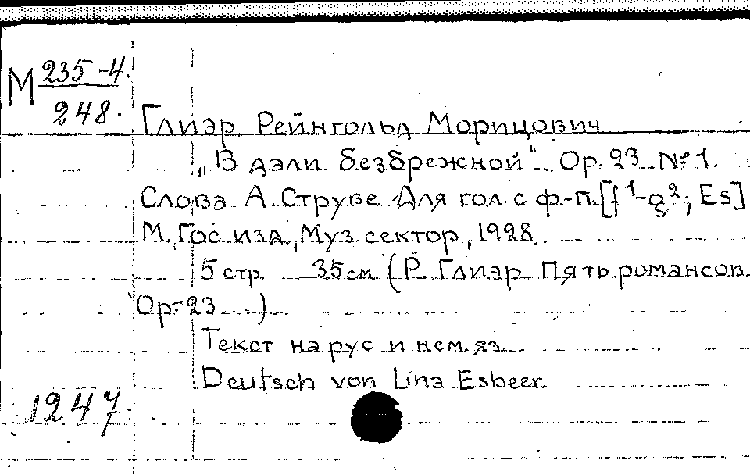 М 235-4
248.
Глиэр Рейнгольд Морицович
„В дали безбрежной" Ор. 23 № 1.
Слова А. Струве Для гол с ф-п. [f¹-g²; Es]
М., Гос изд, Муз сектор, 1928.
5 стр. 35 см (Р. Глиэр Пять романсов.
Ор. 23 )
Текст на рус и нем. яз.
Deutsch von Lina Esbeer.
1247.